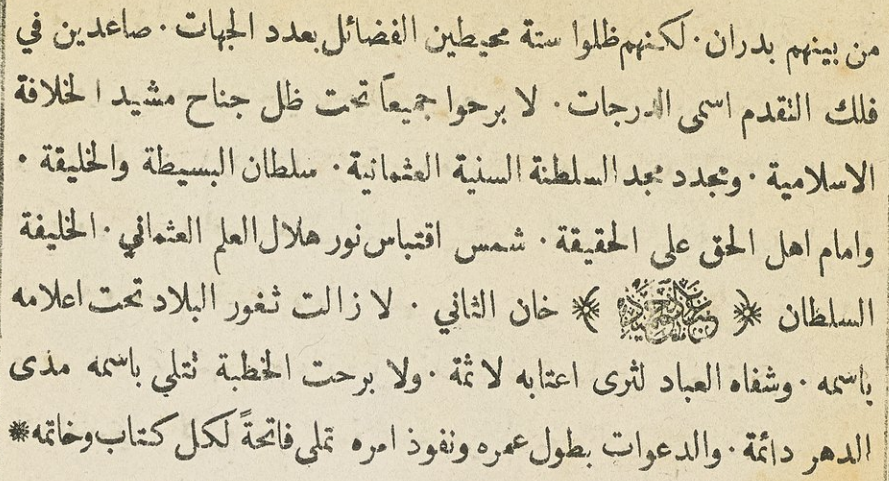 من بينهم بدران . لكنهم ظلوا ستة محيطين الفضائل بعدد الجهات . صاعدين في
فلك التقدم اسمى الدرجات . لا برحوا جميعاً تحت ظل جناح مشيد الخلافة
الاسلامية . ومجدد مجد السلطنة السنية العثمانية . سلطان البسيطة والخليقة .
وامام اهل الحق على الحقيقة . شمس اقتباس نور هلال العلم العثماني . الخليفة
السلطان ﴿ ﴾ خان الثاني . لا زالت ثغور البلاد تحت اعلامه
باسمه . وشفاه العباد لثرى اعتابه لاثمة . ولا برحت الخطبة تتلى باسمه مذى
الدهر دائمة . والدعوات بطول عمره ونفوذ امره تملى فاتحةً لكل كتاب وخاتمه *